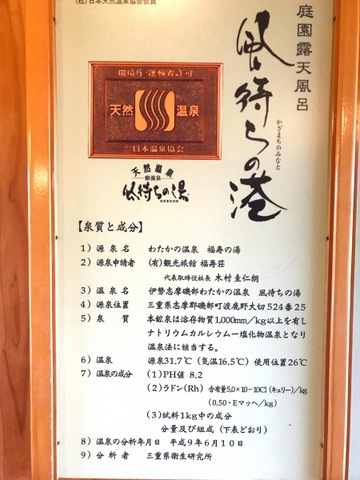 (社)日本天然温泉協会会員
庭園露天風呂
風待ちの港
かざまちのみなと
環境庁・運輸省許可
天然 温泉
日本温泉協会
天然温泉
療養泉
風待ちの湯
かざまちのゆ
【泉質と成分】
1）源泉名 わたかの温泉 福寿の湯
2）源泉申請者 (有)観光旅館 福寿荘
代表取締役社長 木村圭仁朗
3）温泉名 伊勢志摩磯部わたかの温泉 風待ちの湯
4）源泉位置 三重県志摩郡磯部町渡鹿野大切524番25
5）泉質 本鉱泉は溶存物質1,000mm／kg以上を有し
ナトリウムカルシウムー塩化物温泉となり
温泉法に該当する。
6）温泉 源泉31.7℃（気温16.5℃）使用位置26℃
7）温泉の成分 (1)PH値 8.2
(2)ラドン(Rh) 含有量5,0×10-10CI（キュリー）／kg
(0,50・Eマッヘ／kg)
(3)試料1kg中の成分
分量及び組成（下表どおり）
8）温泉の分析年月日 平成9年6月10日
9）分析者 三重県衛生研究所